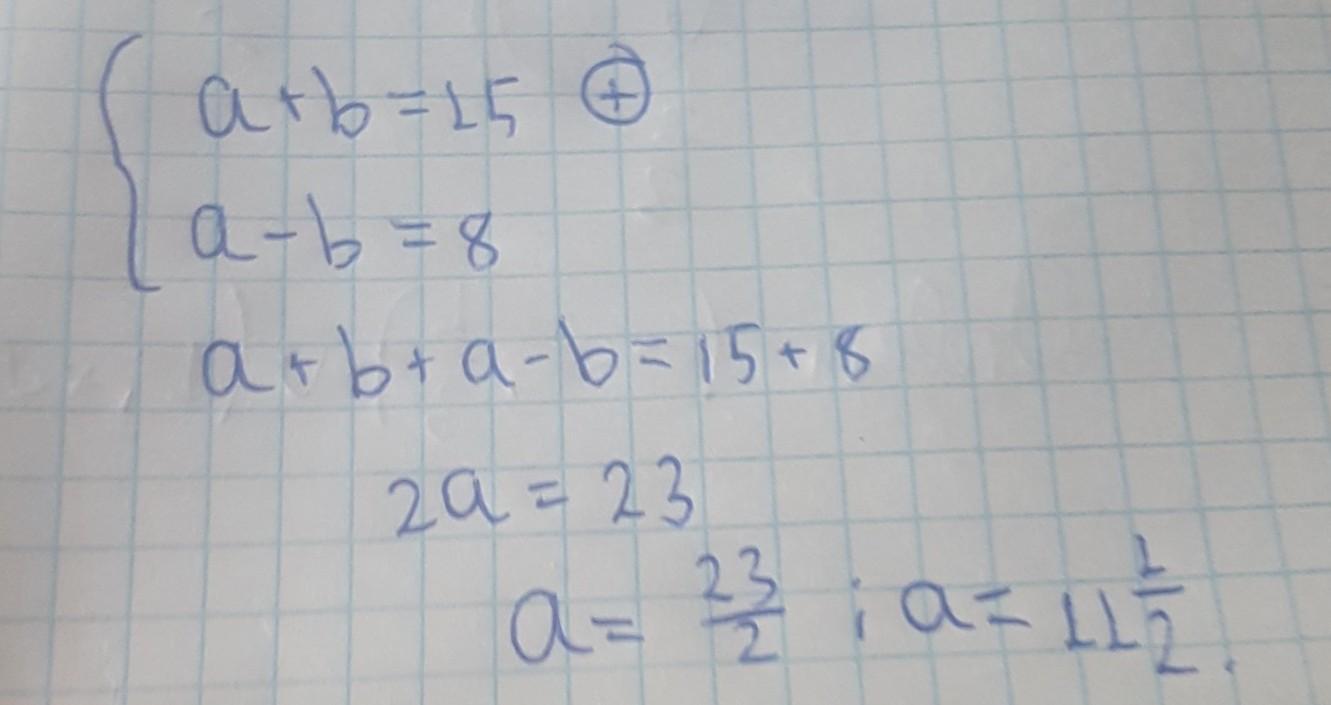 a + b = 15 ⊕
a - b = 8
a + b + a - b = 15 + 8
2a = 23
a = 23/2 ; a = 11 1/2.